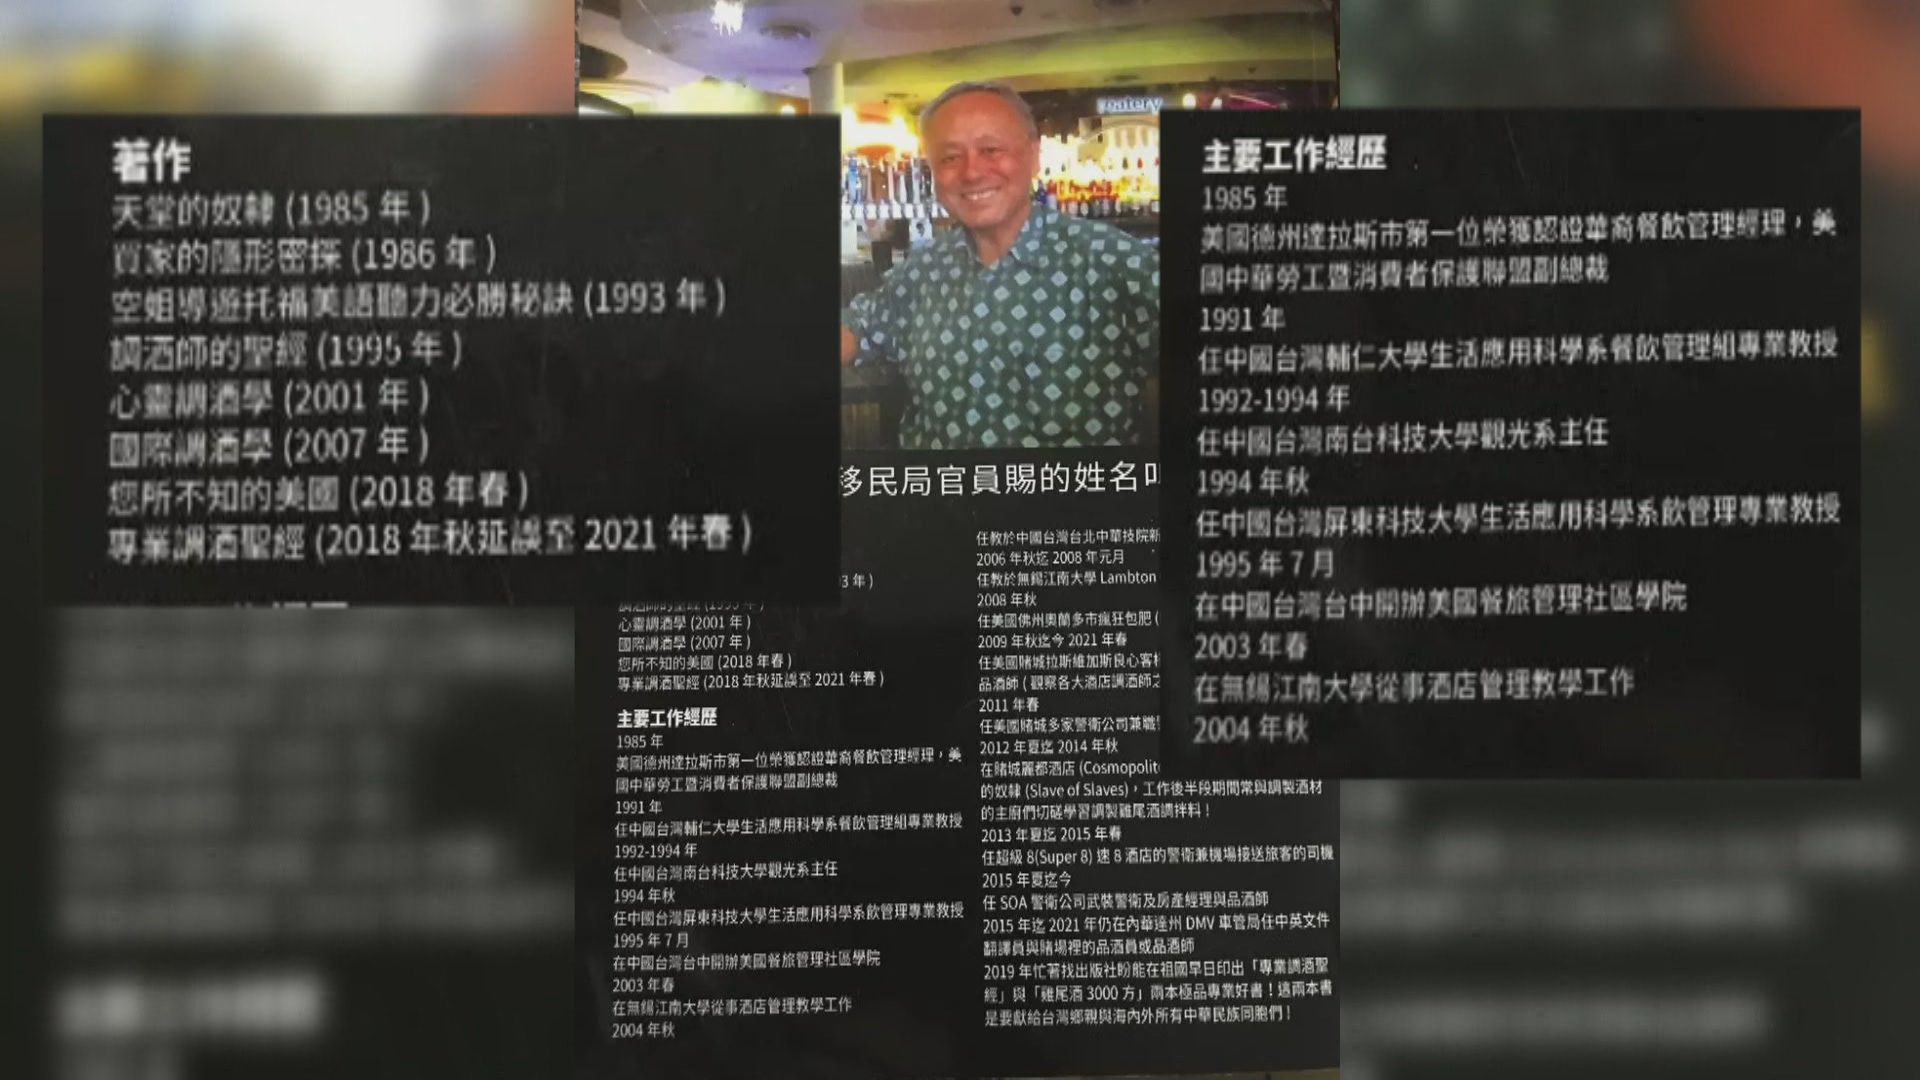 著作
天堂的奴隸 (1985 年 )
買家的隱形密探 (1986 年 )
空姐導遊托福美語聽力必勝秘訣 (1993 年 )
調酒師的聖經 (1995 年 )
心靈調酒學 (2001 年 )
國際調酒學 (2007 年 )
您所不知的美國 (2018 年春 )
專業調酒聖經 (2018 年秋延誤至 2021 年春 )
eatery
主要工作經歷
1985 年
美國德州達拉斯市第一位榮獲認證華裔餐飲管理經理，美
國中華勞工暨消費者保護聯盟副總裁
1991 年
任中國台灣輔仁大學生活應用科學系餐飲管理組專業教授
1992-1994 年
任中國台灣南台科技大學觀光系主任
1994 年秋
任中國台灣屏東科技大學生活應用科學系飲管理專業教授
1995 年 7 月
在中國台灣台中開辦美國餐旅管理社區學院
2003 年春
在無錫江南大學從事酒店管理教學工作
2004 年秋
移民局官員賜的姓名叫
3 年 )
調酒師的聖經 (1995 年 )
心靈調酒學 (2001 年 )
國際調酒學 (2007 年 )
您所不知的美國 (2018 年春 )
專業調酒聖經 (2018 年秋延誤至 2021 年春 )
主要工作經歷
1985 年
美國德州達拉斯市第一位榮獲認證華裔餐飲管理經理，美
國中華勞工暨消費者保護聯盟副總裁
1991 年
任中國台灣輔仁大學生活應用科學系餐飲管理組專業教授
1992-1994 年
任中國台灣南台科技大學觀光系主任
1994 年秋
任中國台灣屏東科技大學生活應用科學系飲管理專業教授
1995 年 7 月
在中國台灣台中開辦美國餐旅管理社區學院
2003 年春
在無錫江南大學從事酒店管理教學工作
2004 年秋
任教於中國台灣台北中華技院新
2006 年秋迄 2008 年元月
任教於無錫江南大學 Lambton
2008 年秋
任美國佛州奧蘭多市瘋狂包肥 (
2009 年秋迄今 2021 年春
任美國賭城拉斯維加斯良心客棧
品酒師 ( 觀察各大酒店調酒師之
2011 年春
任美國賭城多家警衛公司兼職
2012 年夏迄 2014 年秋
在賭城麗都酒店 (Cosmopolit
的奴隸 (Slave of Slaves)，工作後半段期間常與調製酒材
的主廚們切磋學習調製雞尾酒調拌料！
2013 年夏迄 2015 年春
任超級 8(Super 8) 速 8 酒店的警衛兼機場接送旅客的司機
2015 年夏迄今
任 SOA 警衛公司武裝警衛及房產經理與品酒師
2015 年迄 2021 年仍在內華達州 DMV 車管局任中英文件
翻譯員與賭場裡的品酒員或品酒師
2019 年忙著找出版社盼能在祖國早日印出「專業調酒聖
經」與「雞尾酒 3000 方」兩本極品專業好書！這兩本書
是要獻給台灣鄉親與海內外所有中華民族同胞們！